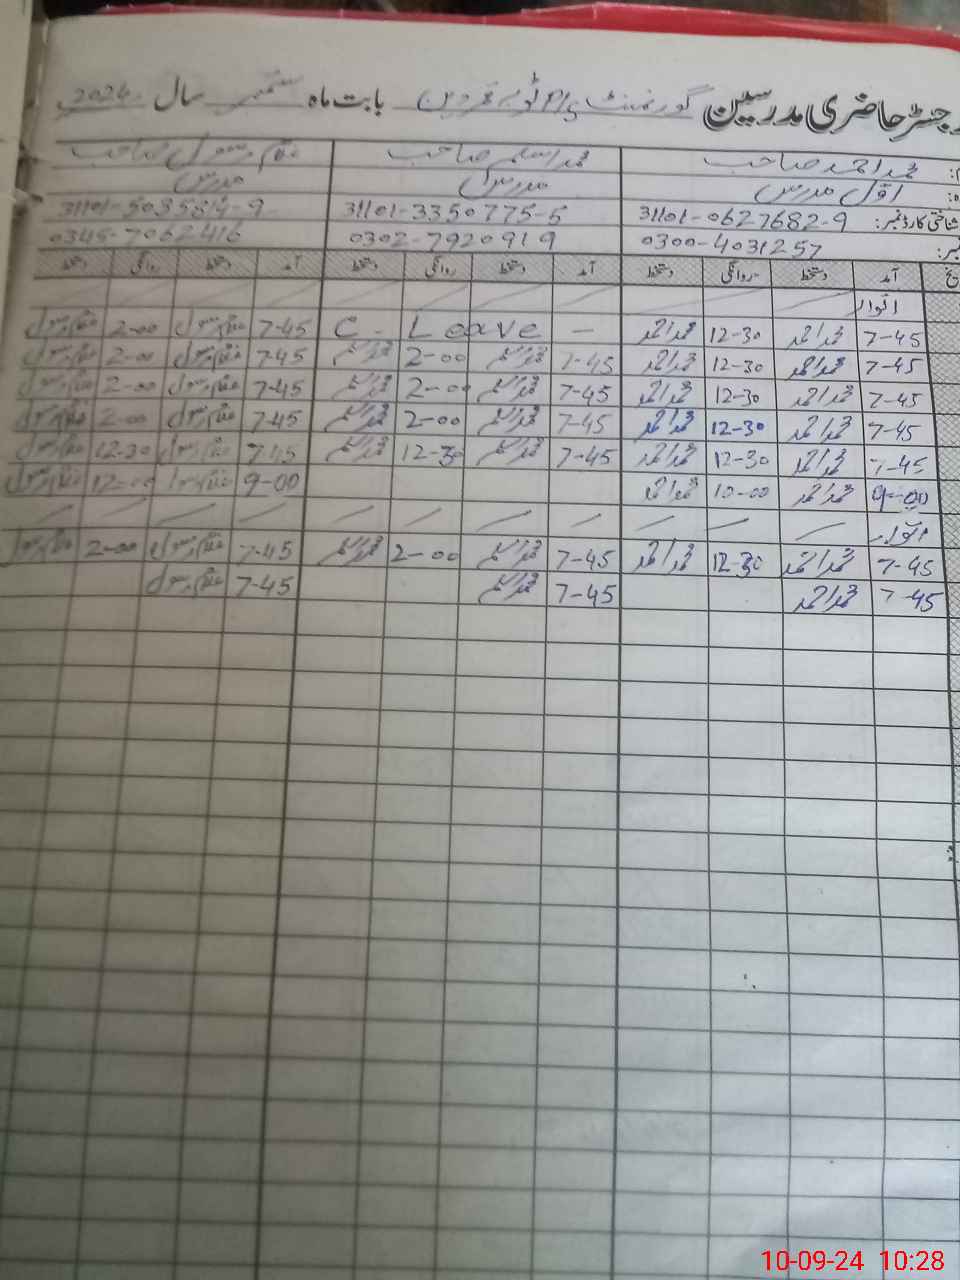 رجسٹر حاضری مدرسین گورنمنٹ P/S بابت ماہ ستمبر سال 2024
محمد احمد صاحب محمد اسلم صاحب غلام رسول صاحب
اوّل مدرس مدرس مدرس
شناختی کارڈ نمبر: 31101-0627682-9 31101-3350775-5 31101-5085814-9
نمبر: 0300-4031257 0302-7920919 0345-7062416
آمد دستخط روانگی دستخط آمد دستخط روانگی دستخط آمد دستخط روانگی دستخط
اتوار
7-45 محمد احمد 12-30 محمد احمد — C. Leave 7-45 غلام رسول 2-00 غلام رسول
7-45 محمد احمد 12-30 محمد احمد 7-45 محمد اسلم 2-00 محمد اسلم 7-45 غلام رسول 2-00 غلام رسول
7-45 محمد احمد 12-30 محمد احمد 7-45 محمد اسلم 2-00 محمد اسلم 7-45 غلام رسول 2-00 غلام رسول
7-45 محمد احمد 12-30 محمد احمد 7-45 محمد اسلم 2-00 محمد اسلم 7-45 غلام رسول 2-00 غلام رسول
7-45 محمد احمد 12-30 محمد احمد 7-45 محمد اسلم 12-30 محمد اسلم 7-45 غلام رسول 12-30 غلام رسول
9-00 محمد احمد 10-00 محمد احمد 9-00 غلام رسول 12-00 غلام رسول
اتوار
7-45 محمد احمد 12-30 محمد احمد 7-45 محمد اسلم 2-00 محمد اسلم 7-45 غلام رسول 2-00 غلام رسول
7-45 محمد احمد 7-45 محمد اسلم 7-45 غلام رسول
10-09-24 10:28